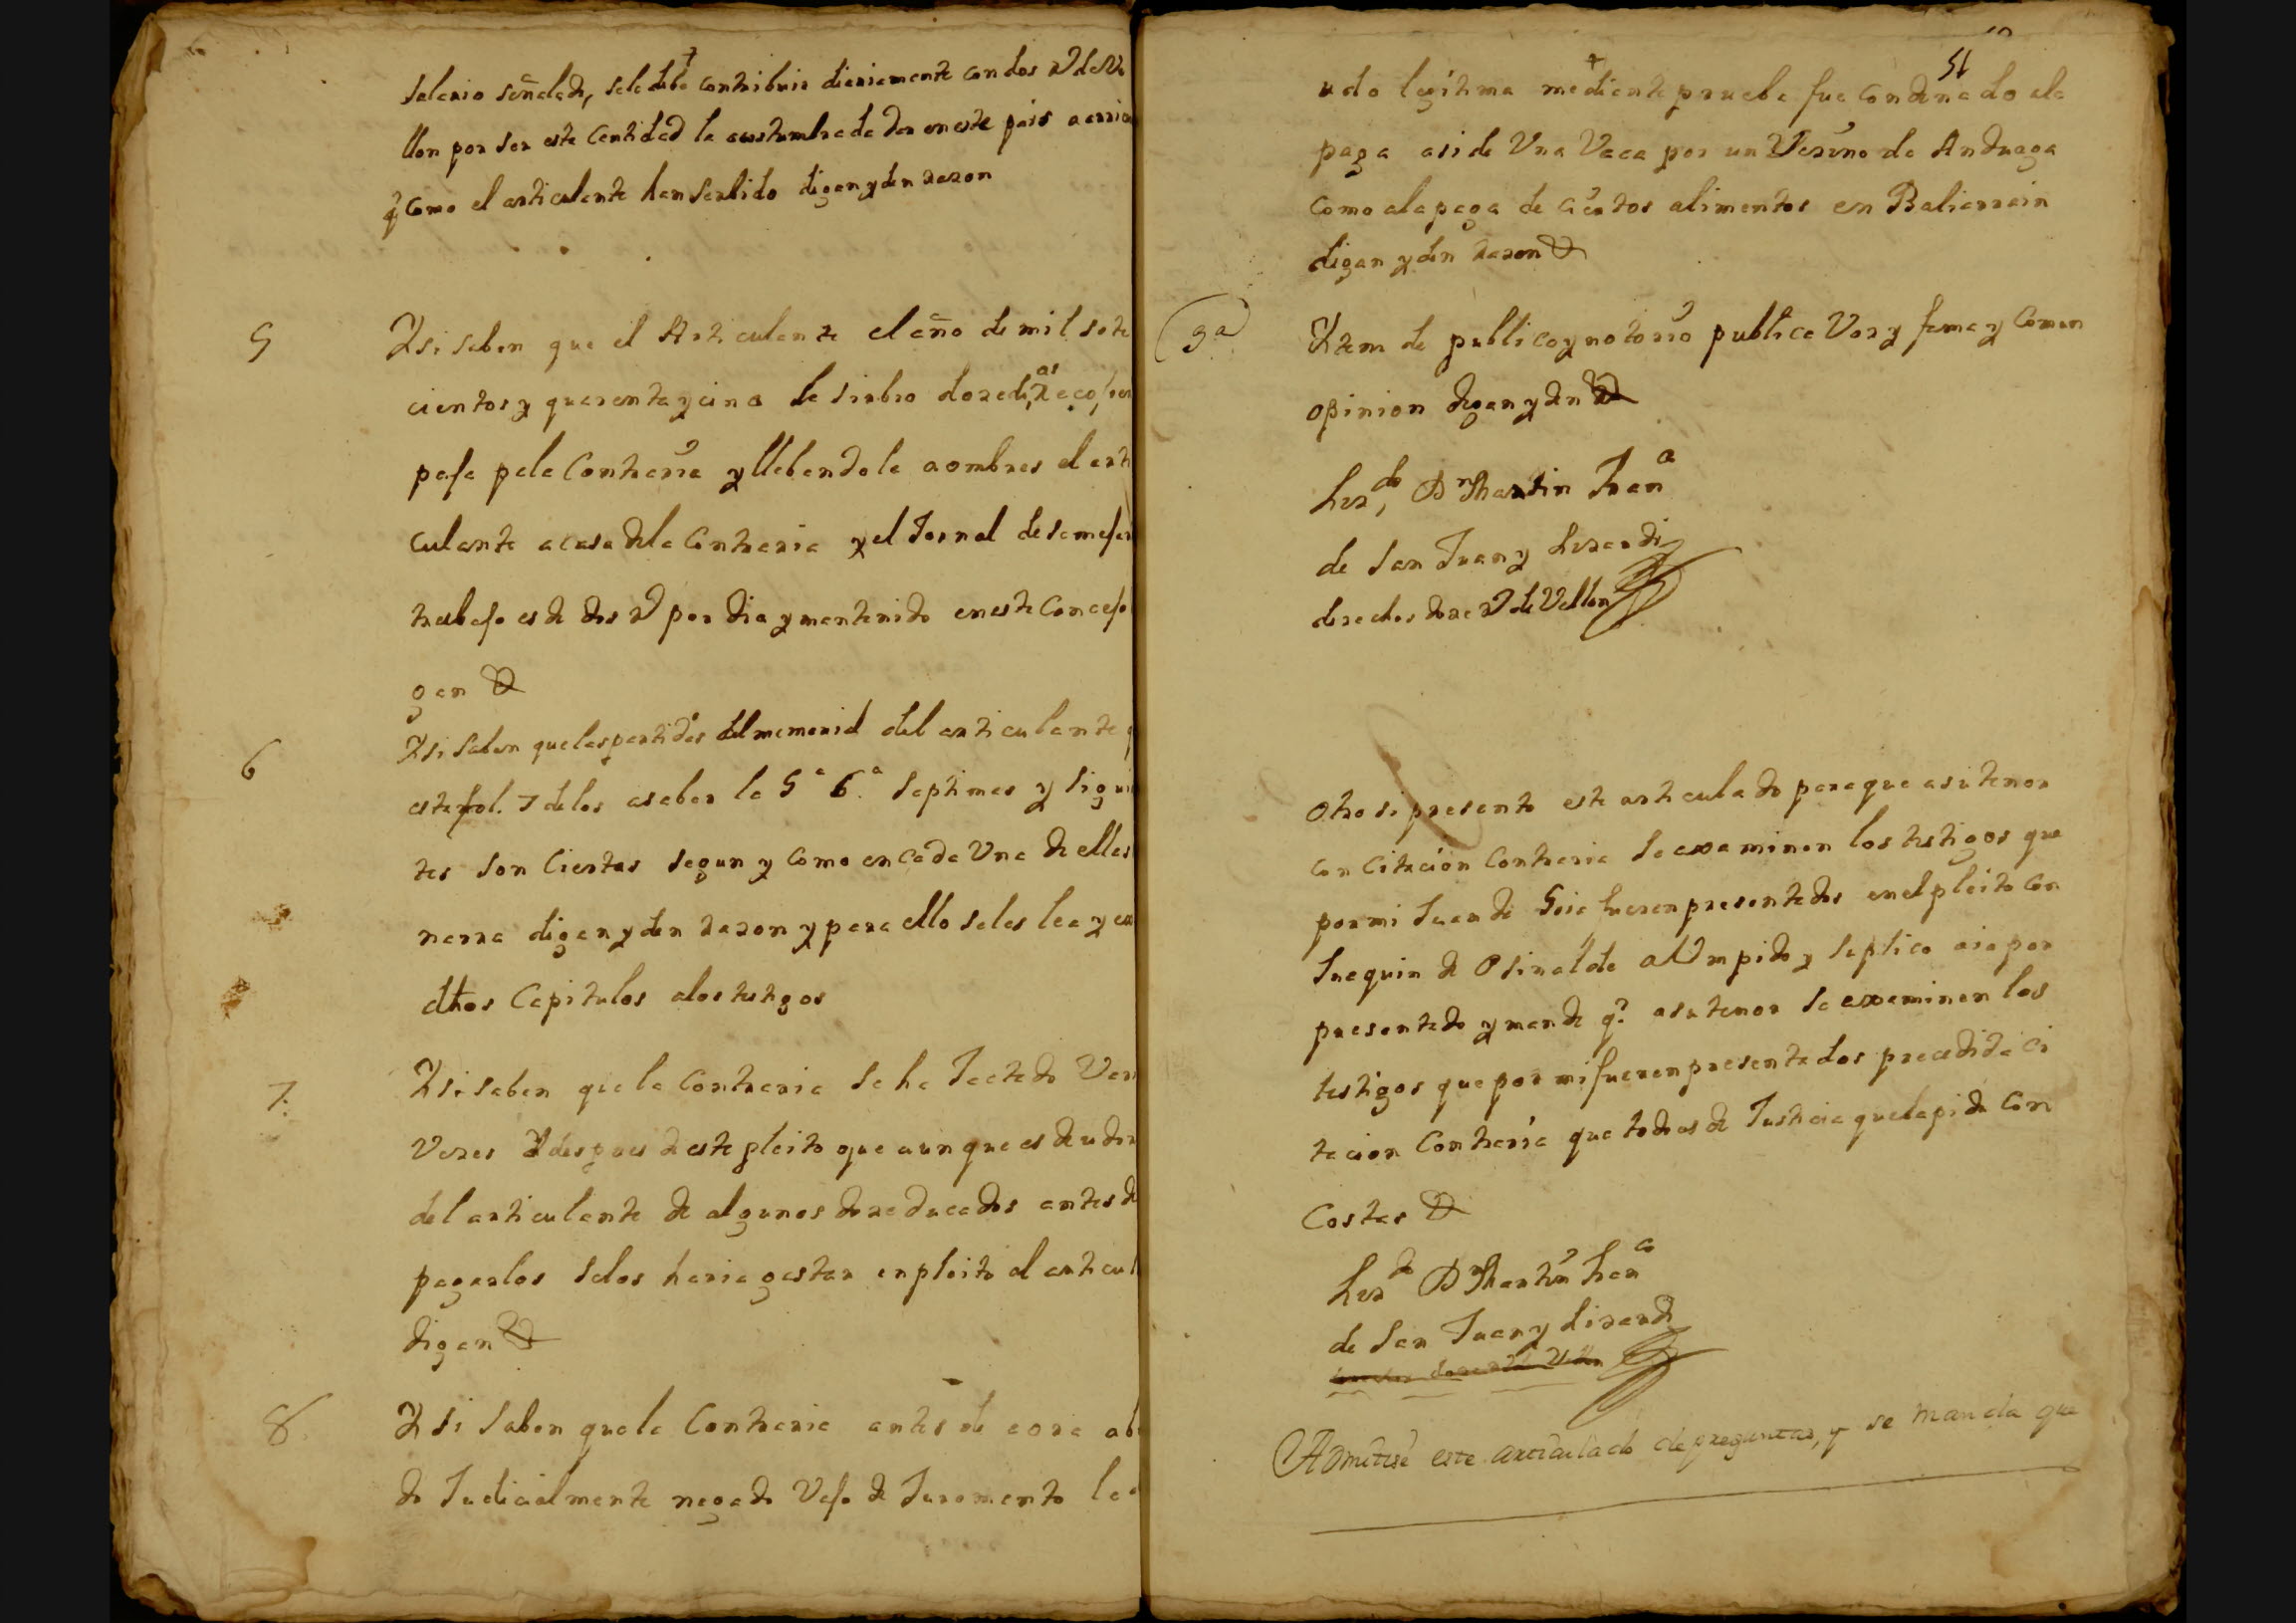 salario señalado, se le debe contribuir diariamente con dos rs de ve
llon por ser esta Cantidad la acostumbrada dar en este pais a arri
q Como el articulante han serbido digan y den razon
5 Y si saben que el Articulante el año de mil sete
cientos y quarenta y cinco le sirbio doze
para la Contraria y llebandole aombres el arti
culante a casa dela Contraria y el Jornal de semejan
trabajo es de dos rs por dia y mantenido en este Concejo
gan &
6 Y si saben que las partidas del memorial del articulante q
esta fol. 7 delos a saber la 5ª 6ª. septimas y sigui
tes son Ciertas segun y como en cada Una de ellas
narra digan y den razon y para ello se les lea y
dhos Capitulos alos testigos
7. Y si saben que la Contraria se ha Jactado Var
Vezes despues de este pleito que aunque es deudor
del articulante de algunos doze ducados antes de
pagarlos selos haria gastar en pleito al articul
digan &
8. Y si saben que la Contraria antes de aora ab
do Judicialmente negado Vajo de Juramento la
51
udo legitima mediante prueba fue Condenado ala
paga asi de Una Vaca por un Vezino de Andoaga
como ala paga de ciertos alimentos en Baliarrain
digan y den razon &
9ª Ytem de publico y notorio publica Voz y fama y Comun
opinion digan y den &
Lizdo Dn Martin Franco
de San Juan y Lizardi
derechos doze rs de Vellon
Otro si presento este articulado para que a su tenor
con Citacion Contraria se examinen los testigos que
por mi Juan de Soria fueren presentados en el pleito con
Juaquin de Osinalde a Vm pido y suplico aia por
presentado y mande q.e a su tenor se examinen los
testigos que por mi fueren presentados precedida ci
tacion Contraria que todo es de Justicia que la pido con
Costas &
Lizdo Dn Martin Franco
de San Juan y Lizardi
Admitese este articulado de preguntas, y se manda que